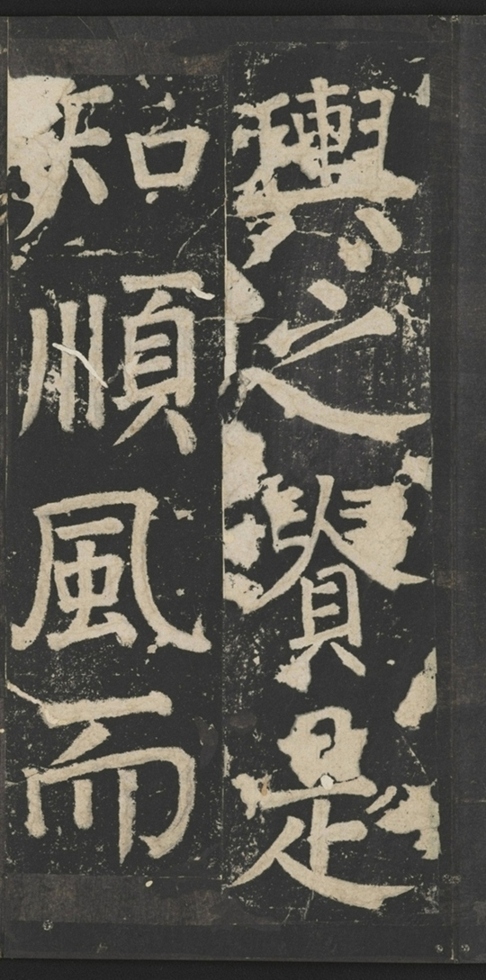 輿之是
知順風而